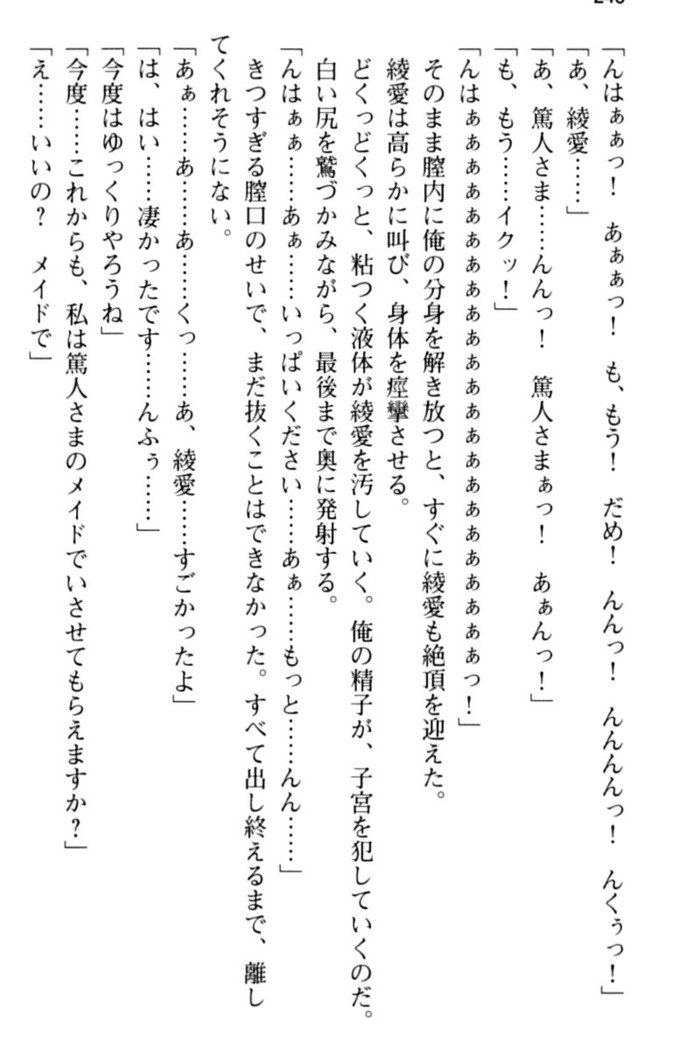 「んはぁぁっ!　あぁぁっ!　も、もう!　だめ!　んんっ!　んんんんっ!　んくぅっ!」
「あ、綾愛……」
「あ、篤人さま……んんっ!　篤人さまぁっ!　あぁんっ!」
「も、もう……イクッ!」
「んはぁぁぁぁぁぁぁぁぁぁぁぁぁぁぁぁぁぁぁぁぁぁっ!」
そのまま膣内に俺の分身を解き放つと、すぐに綾愛も絶頂を迎えた。
綾愛は高らかに叫び、身体を痙攣させる。
どくっどくっと、粘つく液体が綾愛を汚していく。俺の精子が、子宮を犯していくのだ。
白い尻を鷲づかみながら、最後まで奥に発射する。
「んはぁぁ……あぁ……いっぱいください……あぁ……もっと……んん……」
きつすぎる膣口のせいで、まだ抜くことはできなかった。すべて出し終えるまで、離し
てくれそうにない。
「あぁ……あ……あ……くっ……あ、綾愛……すごかったよ」
「は、はい……凄かったです……んふぅ……」
「今度はゆっくりやろうね」
「今度……これからも、私は篤人さまのメイドでいさせてもらえますか?」
「え……いいの?　メイドで」